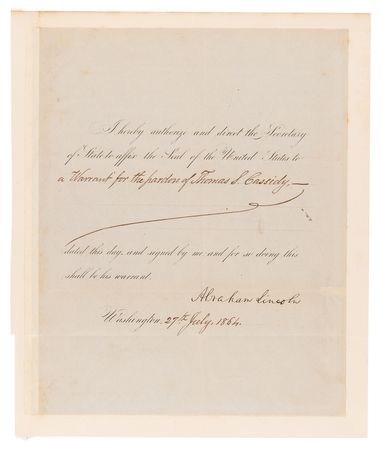 I hereby authorize and direct the Secretary
of State to affix the Seal of the United States to
a Warrant for the pardon of Thomas S. Cassidy,—
dated this day, and signed by me and for so doing this
shall be his warrant.
Abraham Lincoln
Washington, 27th July, 1864.